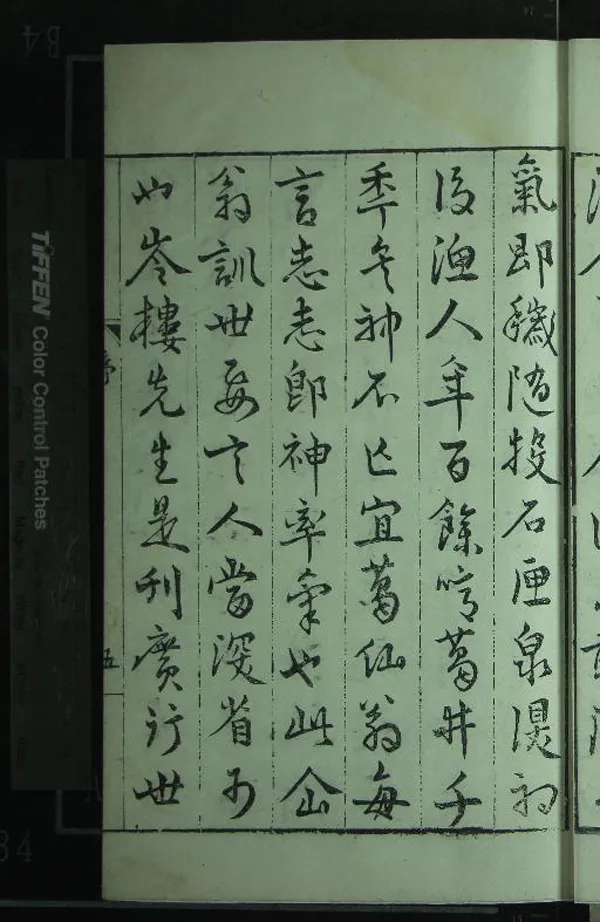 氣即穢随投石匣泉湜初
後漁人年百餘啖葛井千
季矣神不亡宜葛仙翁每
言志志即神率氣也此仚
翁訓世要言人當深省予
也岺樓先生是刊廣行世
序
五
TIFFEN Color Control Patches
B4